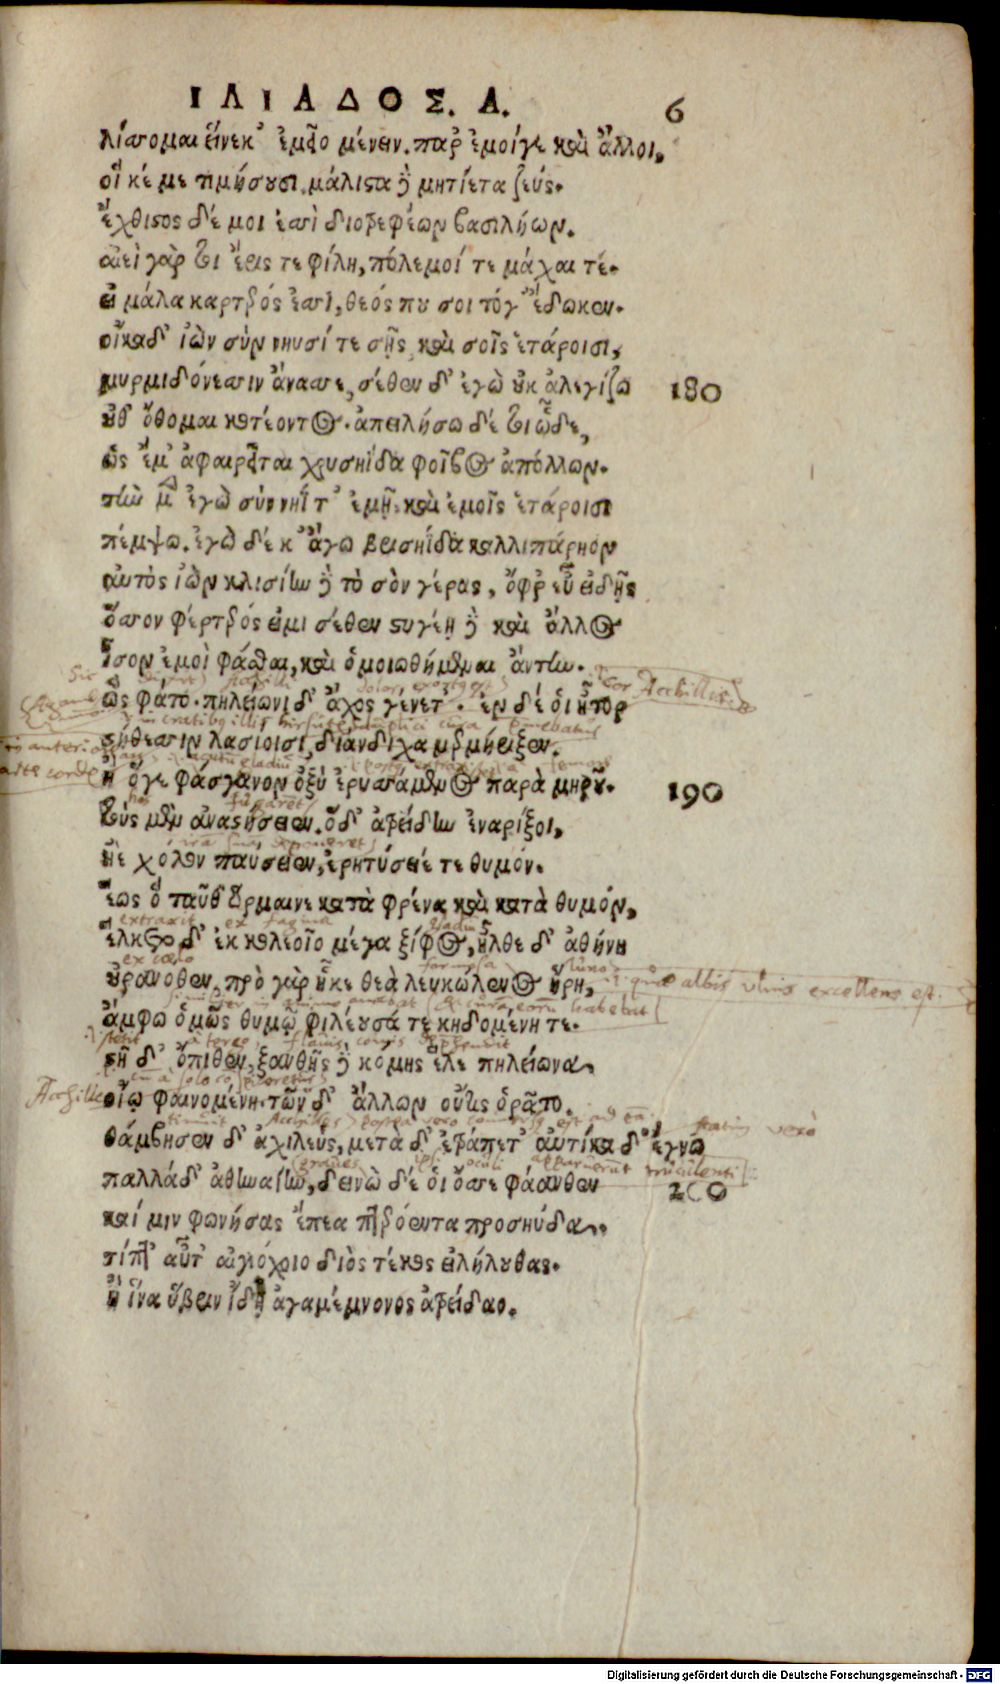 ΙΛΙΑΔΟΣ. Α. 6
λίσσομαι εἵνεκ' ἐμεῖο μένειν. παρ' ἐμοίγε καὶ ἄλλοι,
οἵ κέ με τιμήσουσι. μάλιστα δὲ μητίετα ζεύς.
ἔχθιστος δέ μοι ἐσσὶ διοτρεφέων βασιλήων.
αἰεὶ γάρ τοι ἔρις τε φίλη, πόλεμοί τε μάχαι τέ.
εἰ μάλα καρτερός ἐσσι, θεός που σοι τόγ' ἔδωκεν.
οἴκαδ' ἰὼν σὺν νηυσί τε σῇς καὶ σοῖς ἑτάροισι,
μυρμιδόνεσσιν ἄνασσε, σέθεν δ' ἐγὼ οὐκ ἀλεγίζω 180
οὐδ' ὄθομαι κοτέοντος. ἀπειλήσω δέ τοι ὧδε,
ὡς ἔμ' ἀφαιρεῖται χρυσηΐδα φοῖβος ἀπόλλων.
τὴν μὲν ἐγὼ σὺν νηΐ τ' ἐμῇ καὶ ἐμοῖς ἑτάροισι
πέμψω. ἐγὼ δέ κ' ἄγω βρισηΐδα καλλιπάρηον
αὐτὸς ἰὼν κλισίην δὲ τὸ σὸν γέρας, ὄφρ' εὖ εἰδῇς
ὅσσον φέρτερός εἰμι σέθεν στυγέῃ δὲ καὶ ἄλλος
ἶσον ἐμοὶ φάσθαι, καὶ ὁμοιωθήμεναι ἄντην.
Sic Achilli dolor cor Achillis
ὣς φάτο. πηλείωνι δ' ἄχος γένετ'. ἐν δέ οἱ ἦτορ
στήθεσσιν λασίοισι, διάνδιχα μερμήριξεν.
ἢ ὅγε φάσγανον ὀξὺ ἐρυσσάμενος παρὰ μηροῦ. 190
hos fugaret
τοὺς μὲν ἀναστήσειεν. ὅδ' ἀτρείδην ἐναρίξοι,
ἠὲ χόλον παύσειεν, ἐρητύσειέ τε θυμόν.
ἕως ὃ ταῦθ' ὥρμαινε κατὰ φρένα καὶ κατὰ θυμόν,
extraxit ex vagina
ἕλκετο δ' ἐκ κολεοῖο μέγα ξίφος, ἦλθε δ' ἀθήνη
ex coelo formosa
οὐρανόθεν, πρὸ γὰρ ἧκε θεὰ λευκώλενος ἥρη, quae albis ulnis excellens est.
ἄμφω ὁμῶς θυμῷ φιλέουσά τε κηδομένη τε.
stetit à tergo, flavis comis
στῆ δ' ὄπιθεν, ξανθῆς δὲ κόμης ἕλε πηλείωνα,
οἴῳ φαινομένη. τῶν δ' ἄλλων οὔτις ὁρᾶτο.
timuit Achilles postea vero
θάμβησεν δ' ἀχιλεύς, μετὰ δ' ἐτράπετ' αὐτίκα δ' ἔγνω
oculi apparuerunt truculenti
παλλάδ' ἀθηναίην, δεινὼ δέ οἱ ὄσσε φάανθεν 200
καί μιν φωνήσας ἔπεα πτερόεντα προσηύδα,
τίπτ' αὖτ' αἰγιόχοιο διὸς τέκος εἰλήλουθας.
ἢ ἵνα ὕβριν ἴδῃ ἀγαμέμνονος ἀτρείδαο.
Digitalisierung gefördert durch die Deutsche Forschungsgemeinschaft - DFG